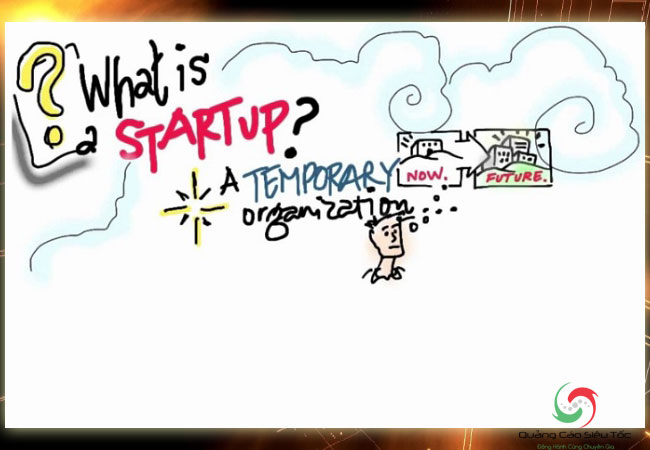 ?
What is
a STARTUP?
A TEMPORARY
organization
NOW.
FUTURE.
Quảng Cáo Siêu Tốc
Đồng Hành Cùng Chuyên Gia